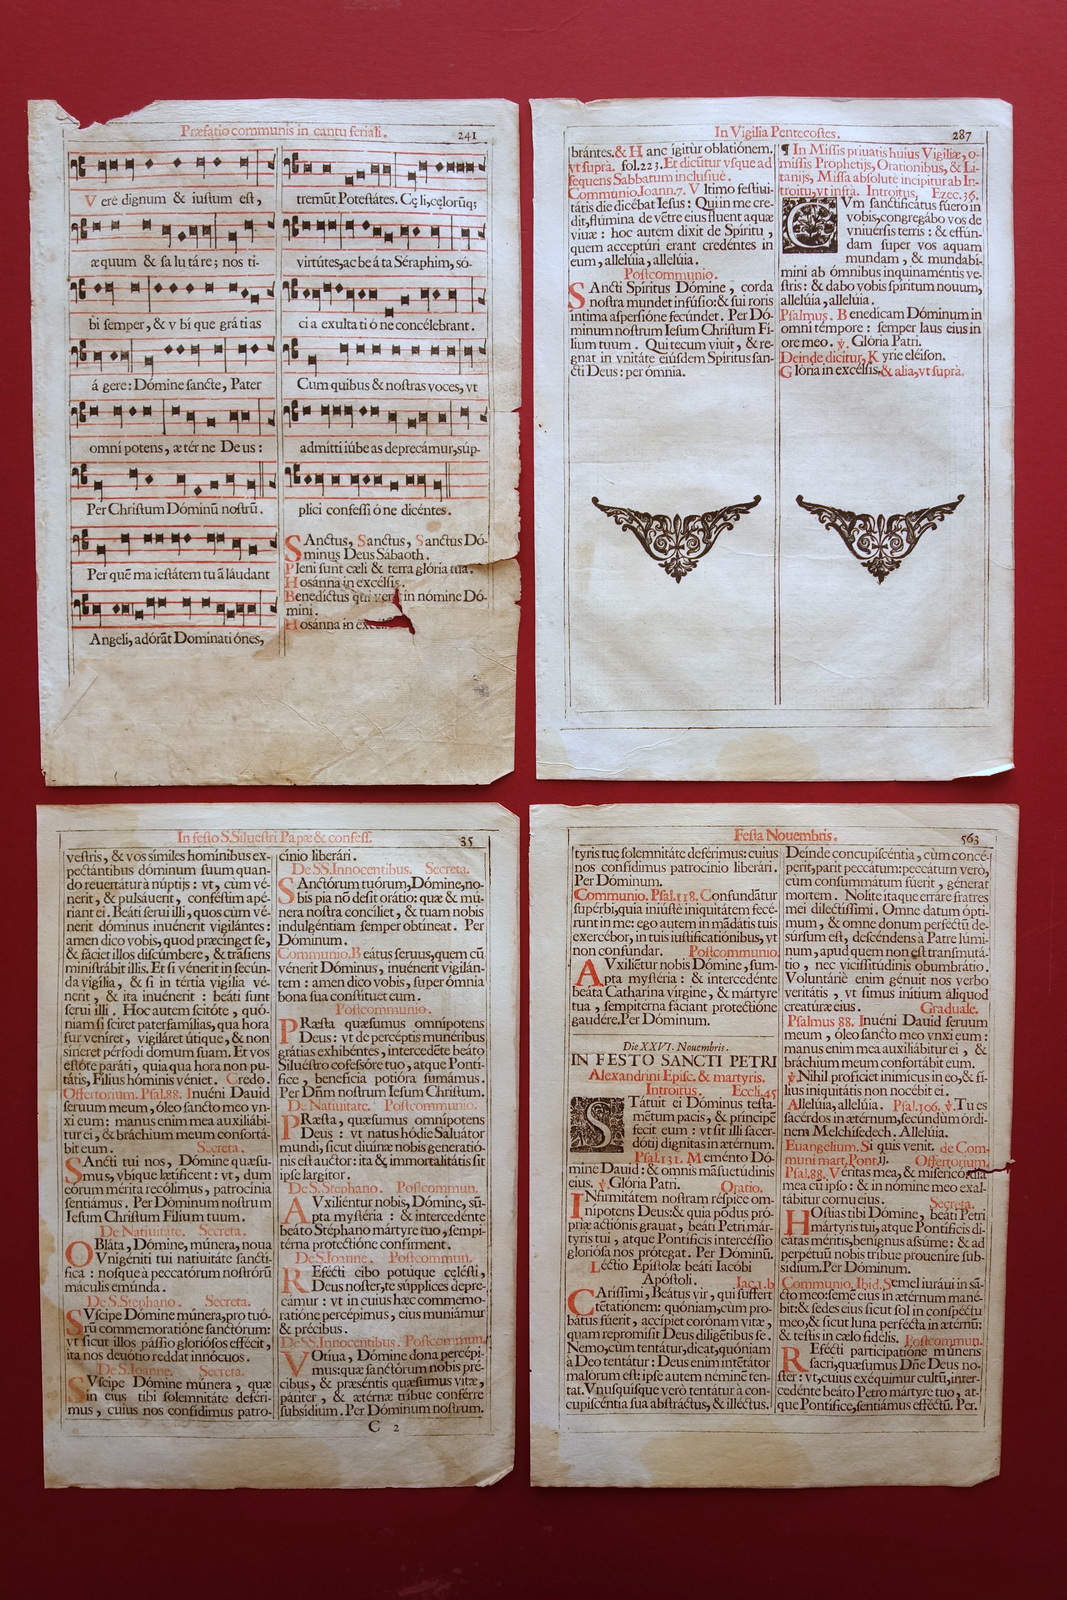 Præfatio communis in cantu feriali. 241
Vere dignum & iustum est,
æquum & salutáre; nos ti-
bi semper, & vbíque grátias
ágere: Dómine sancte, Pater
omnipotens, ætérne Deus:
Per Christum Dóminū nostrū.
Per quē maiestátem tuā láudant
Angeli, adórāt Dominatiónes,
tremūt Potestátes. Cęli, cęlorūq;
virtútes, ac beáta Séraphim, só-
cia exultatióne concélebrant.
Cum quibus & nostras voces, vt
admitti iúbeas deprecámur, súp-
plici confessióne dicéntes.
Sanctus, Sanctus, Sanctus Dó-
minus Deus Sábaoth.
Pleni sunt cæli & terra glória tua.
Hosánna in excélsis.
Benedictus qui venit in nómine Dó-
mini.
Hosánna in
In Vigilia Pentecostes. 287
brántes. & Hanc ígitur oblatiónem.
vt supra. fol. 223. Et dicitur vsque ad
sequens Sabbatum inclusiuè.
Communio. Ioann. 7. Vltimo festiui-
tátis die dicébat Iesus: Qui in me cre-
dit, flúmina de vētre eius fluent aquæ
viuæ: hoc autem dixit de Spíritu,
quem acceptúri erant credéntes in
eum, allelúia, allelúia.
Postcommunio.
Sancti Spíritus Dómine, corda
nostra mundet infúsio: & sui roris
íntima aspersióne fecúndet. Per Dó-
minum nostrum Iesum Christum Fí-
lium tuum. Qui tecum viuit, & re-
gnat in vnitáte eiúsdem Spíritus san-
cti Deus: per ómnia.
¶ In Missis priuatis huius Vigiliæ, o-
missis Prophetijs, Orationibus, & Li-
tanijs, Missa absolutè incipitur ab In-
troitu, vt infra. Introitus. Ezec. 36.
CVm sanctificátus fúero in
vobis, congregábo vos de
vniuérsis terris: & effún-
dam super vos aquam
mundam, & mundabí-
mini ab ómnibus inquinaméntis ve-
stris: & dabo vobis spíritum nouum,
allelúia, allelúia.
Psalmus. Benedícam Dóminum in
omni témpore: semper laus eius in
ore meo. ℣. Glória Patri.
Deinde dicitur, Kyrie eléison.
Glória in excélsis. & alia, vt suprà.
In festo S. Siluestri Papæ & confess. 35
vestris, & vos símiles homínibus ex-
pectántibus dóminum suum quan-
do reuertátur à núptijs: vt, cùm vé-
nerit, & pulsáuerit, conféstim apé-
riant ei. Beáti serui illi, quos cùm vé-
nerit dóminus inuénerit vigilántes:
amen dico vobis, quod præcínget se,
& fáciet illos discúmbere, & trāsiens
ministrábit illis. Et si vénerit in secún-
da vigília, & si in tértia vigília vé-
nerit, & ita inuénerit: beáti sunt
serui illi. Hoc autem scitóte, quó-
niam si sciret paterfamílias, qua hora
fur veníret, vigiláret útique, & non
síneret pérfodi domum suam. Et vos
estóte paráti, quia qua hora non pu-
tátis, Fílius hóminis véniet. Credo.
Offertorium. Psal. 88. Inuéni Dauid
seruum meum, óleo sancto meo vn-
xi eum: manus enim mea auxiliábi-
tur ei, & bráchium meum confortá-
bit eum. Secreta.
Sancti tui nos, Dómine quæsu-
mus, vbíque lætíficent: vt, dum
eórum mérita recólimus, patrocínia
sentiámus. Per Dóminum nostrum
Iesum Christum Fílium tuum.
De Natiuitate. Secreta.
OBláta, Dómine, múnera, noua
Vnigéniti tui natiuitáte sanctí-
fica: nosque à peccatórum nostrórū
máculis emúnda.
De S. Stephano. Secreta.
SVscipe Dómine múnera, pro tuó-
rū commemoratióne sanctórum:
vt sicut illos pássio gloriósos effécit,
ita nos deuótio reddat innócuos.
De S. Ioanne. Secreta.
SVscipe Dómine múnera, quæ
in eius tibi solemnitáte deféri-
mus, cuius nos confídimus patro-
cínio liberári.
De SS. Innocentibus. Secreta.
SAnctórum tuórum, Dómine, no-
bis pia nō desit orátio: quæ & mú-
nera nostra concíliet, & tuam nobis
indulgéntiam semper obtíneat. Per
Dóminum.
Communio. Beátus seruus, quem cū
vénerit Dóminus, inuénerit vigilán-
tem: amen dico vobis, super ómnia
bona sua constítuet eum.
Postcommunio.
PRæsta quæsumus omnípotens
Deus: vt de percéptis munéribus
grátias exhibéntes, intercedéte beáto
Siluéstro cōfessóre tuo, atque Pontí-
fice, benefícia potióra sumámus.
Per Dn̄m nostrum Iesum Christum.
De Natiuitate. Postcommunio.
PRæsta, quæsumus omnípotens
Deus: vt natus hódie Saluátor
mundi, sicut diuínæ nobis generatió-
nis est auctor: ita & immortalitátis sit
ipse largítor.
De S. Stephano. Postcommun.
AVxiliéntur nobis, Dómine, sū-
pta mystéria: & intercedénte
beáto Stéphano mártyre tuo, sempi-
térna protectióne confírment.
De S. Ioanne. Postcommun.
REfécti cibo potúque cęlésti,
Deus noster, te súpplices depre-
cámur: vt in cuius hæc commemo-
ratióne percépimus, eius muniámur
& précibus.
De SS. Innocentibus. Postcommun.
VOtíua, Dómine dona percépi-
mus: quæ sanctórum nobis pré-
cibus, & præséntis quæsumus vitæ,
páriter, & ætérnæ tríbue conférre
subsídium. Per Dóminum nostrum.
C 2
Festa Nouembris. 563
tyris tuę solemnitáte deférimus: cuius
nos confídimus patrocínio liberári.
Per Dóminum.
Communio. Psal. 118. Confundātur
supérbi, quia iniústè iniquitátem fecé-
runt in me: ego autem in mādátis tuis
exercébor, in tuis iustificatiónibus, vt
non confúndar. Postcommunio.
AVxiliéntur nobis Dómine, sum-
pta mystéria: & intercedénte
beáta Catharína vírgine, & mártyre
tua, sempitérna fáciant protectióne
gaudére. Per Dóminum.
Die XXVI. Nouembris.
IN FESTO SANCTI PETRI
Alexandrini Episc. & martyris.
Introitus. Eccli. 45
STátuit ei Dóminus testa-
méntum pacis, & príncipē
fecit eum: vt sit illi sacer-
dótij dígnitas in ætérnum.
Psal. 131. Meménto Dó-
mine Dauid: & omnis māsuetúdinis
eius. ℣. Glória Patri. Oratio.
INfirmitátem nostram réspice om-
nípotens Deus: & quia pondus pró-
priæ actiónis grauat, beáti Petri már-
tyris tui, atque Pontíficis intercéssio
gloriósa nos prótegat. Per Dóminū.
Léctio Epístolæ beáti Iacóbi
Apóstoli. Iac. 1. b
CAríssimi, Beátus vir, qui suffert
tētatiónem: quóniam, cùm pro-
bátus fúerit, accípiet corónam vitæ,
quam repromísit Deus diligéntibus se.
Nemo, cùm tentátur, dicat, quóniam
à Deo tentátur: Deus enim intētátor
malórum est: ipse autem néminē ten-
tat. Vnusquísque verò tentátur à con-
cupiscéntia sua abstráctus, & illéctus.
Deínde concupiscéntia, cùm concé-
perit, parit peccátum: peccátum verò,
cùm consummátum fúerit, génerat
mortem. Nolíte ítaque erráre fratres
mei dilectíssimi. Omne datum ópti-
mum, & omne donum perféctū de-
súrsum est, descéndens à Patre lúmi-
num, apud quem non est transmutá-
tio, nec vicissitúdinis obumbrátio.
Voluntáriè enim génuit nos verbo
veritátis, vt simus inítium áliquod
creatúræ eius. Graduale.
Psalmus 88. Inuéni Dauid seruum
meum, óleo sancto meo vnxi eum:
manus enim mea auxiliábitur ei, &
bráchium meum confortábit eum.
℣. Nihil profíciet inimícus in eo, & fí-
lius iniquitátis non nocébit ei.
Allelúia, allelúia. Psal. 106. ℣. Tu es
sacérdos in ætérnum, secúndum órdi-
nem Melchísedech. Allelúia.
Euangelium. Si quis venit. de Com-
muni mart. Pont. 11. Offertorium.
Psal. 88. Véritas mea, & misericórdia
mea cū ipso: & in nómine meo exal-
tábitur cornu eius. Secreta.
HOstias tibi Dómine, beáti Petri
mártyris tui, atque Pontíficis di-
cátas méritis, benígnus assúme: & ad
perpétuū nobis tríbue prouenire sub-
sídium. Per Dóminum.
Communio. Ibid. Semel iuráui in sā-
cto meo: semen eius in ætérnum mané-
bit: & sedes eius sicut sol in conspéctu
meo, & sicut luna perfécta in ætérnū:
& testis in cælo fidélis. Postcommun.
REfécti participatióne múneris
sacri, quæsumus Dn̄e Deus no-
ster: vt, cuius exéquimur cultū, inter-
cedénte beáto Petro mártyre tuo, at-
que Pontífice, sentiámus efféctū. Per.